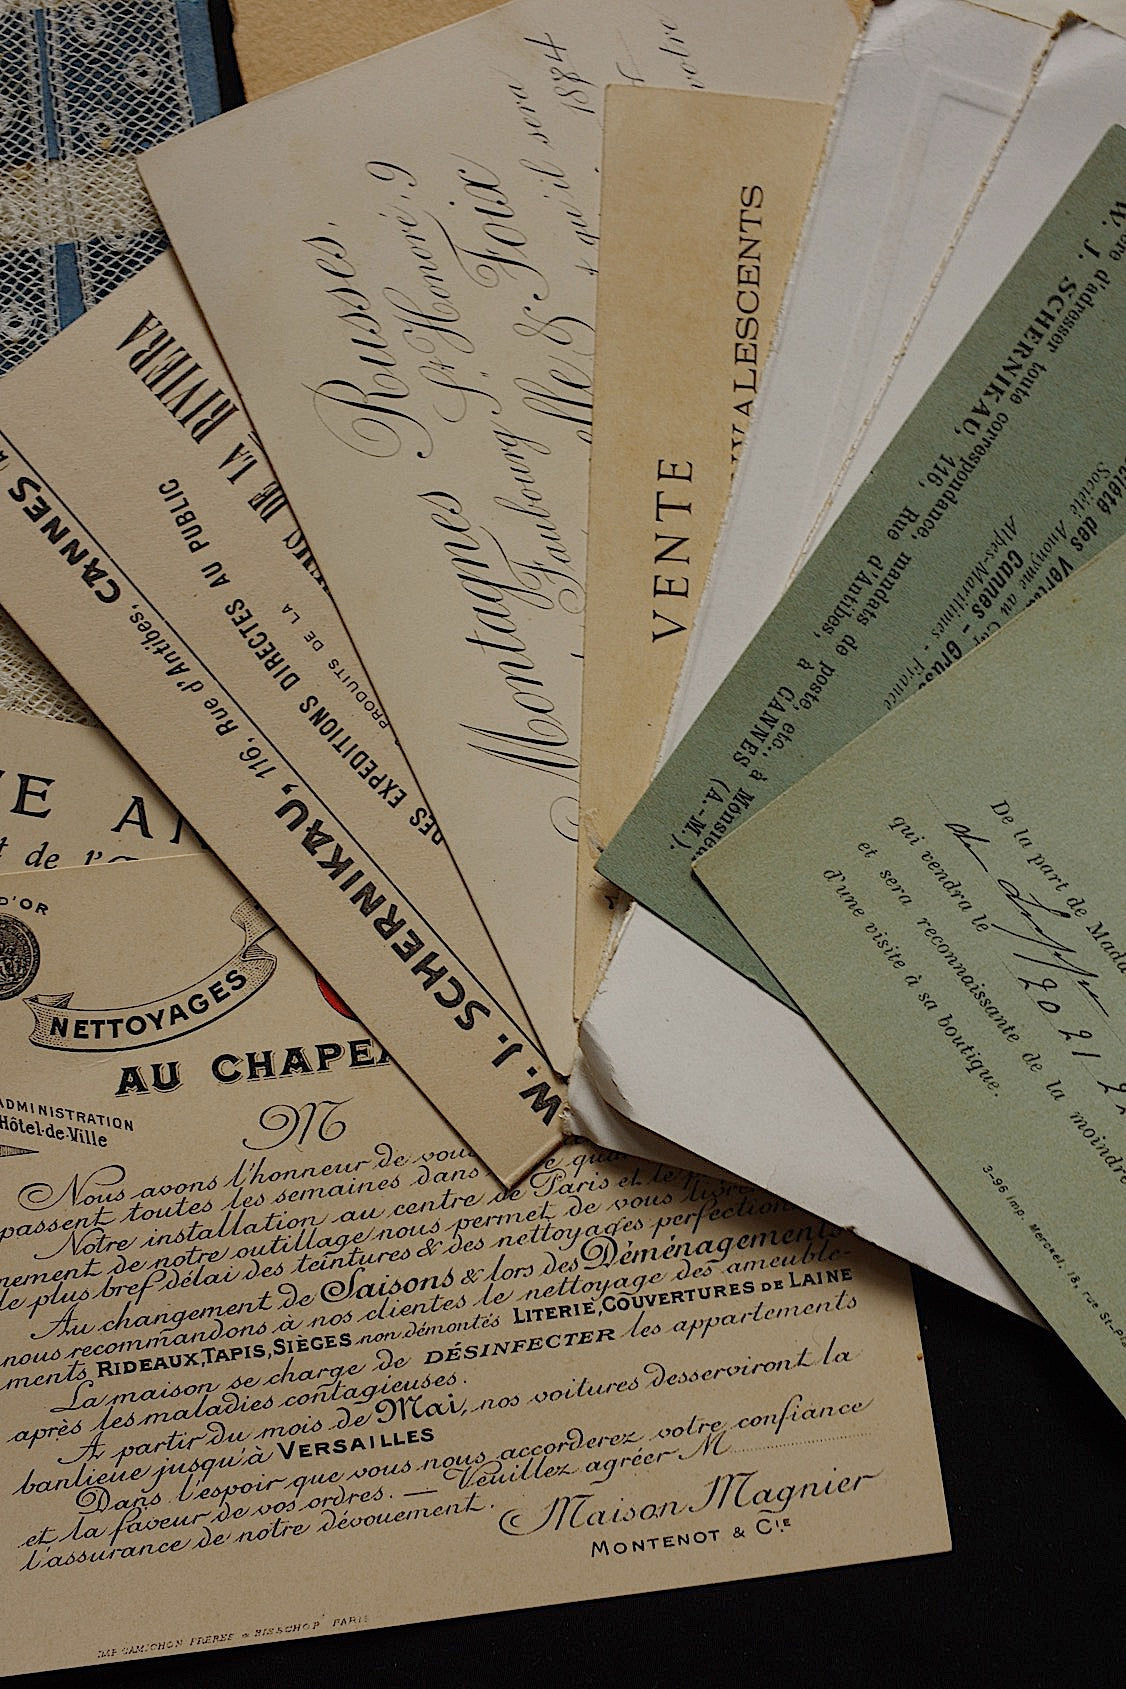 Russes.
St Honoré, 9
Montagnes
Faubourg St Honoré & Foix
elle & qu'il sera 1884
votre
VENTE
VALESCENTS
DE LA RIVIERA
EXPEDITIONS DIRECTES AU PUBLIC
PRODUITS DE LA
W. J. SCHERNIKAU, 116, Rue d'Antibes, CANNES
d'adresser toute correspondance, mandats de poste, etc., à Monsieur
W. J. SCHERNIKAU, 116, Rue d'Antibes, à CANNES (A.-M.).
Société Anonyme au
Cannes -
Alpes-Maritimes - France
De la part de Mada
qui vendra le 20 21
et sera reconnaissante de la moindre
d'une visite à sa boutique.
3-96 Imp. Merckel, 18, rue
de l'
D'OR
NETTOYAGES
AU CHAPEA
ADMINISTRATION
Hôtel-de-Ville
M
Nous avons l'honneur de vou
passent toutes les semaines dans
Notre installation au centre de Paris et le
nement de notre outillage nous permet de vous livrer
le plus bref délai des teintures & des nettoyages perfection
Au changement de Saisons & lors des Déménagements
nous recommandons à nos clientes le nettoyage des ameuble-
ments RIDEAUX, TAPIS, SIÈGES non démontés LITERIE, COUVERTURES DE LAINE
La maison se charge de DÉSINFECTER les appartements
après les maladies contagieuses.
A partir du mois de Mai, nos voitures desserviront la
banlieue jusqu'à VERSAILLES
Dans l'espoir que vous nous accorderez votre confiance
et la faveur de vos ordres. — Veuillez agréer M
l'assurance de notre dévouement.
Maison Magnier
MONTENOT & Cie
IMP CAMICHON FRERES & BISSCHOP PARIS